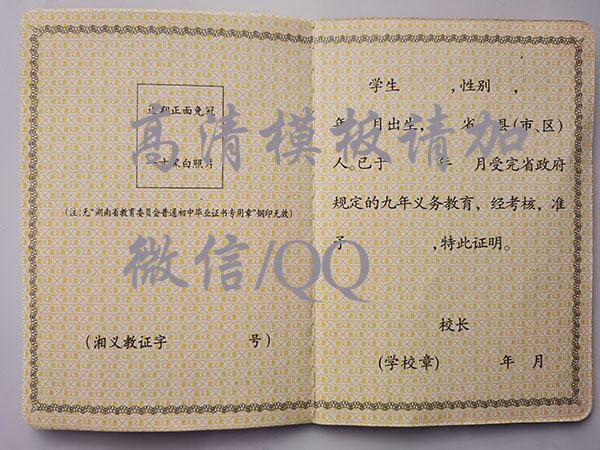 近期正面免冠
一寸黑白照片
(注:无"湖南省教育委员会普通初中毕业证书专用章"钢印无效)
(湘义教证字 号)
学生 ,性别 ,
年 月出生, 省 县(市、区)
人。已于 年 月受完省政府
规定的九年义务教育,经考核,准
予 ,特此证明。
校长
(学校章) 年 月
高清模板请加
微信/QQ